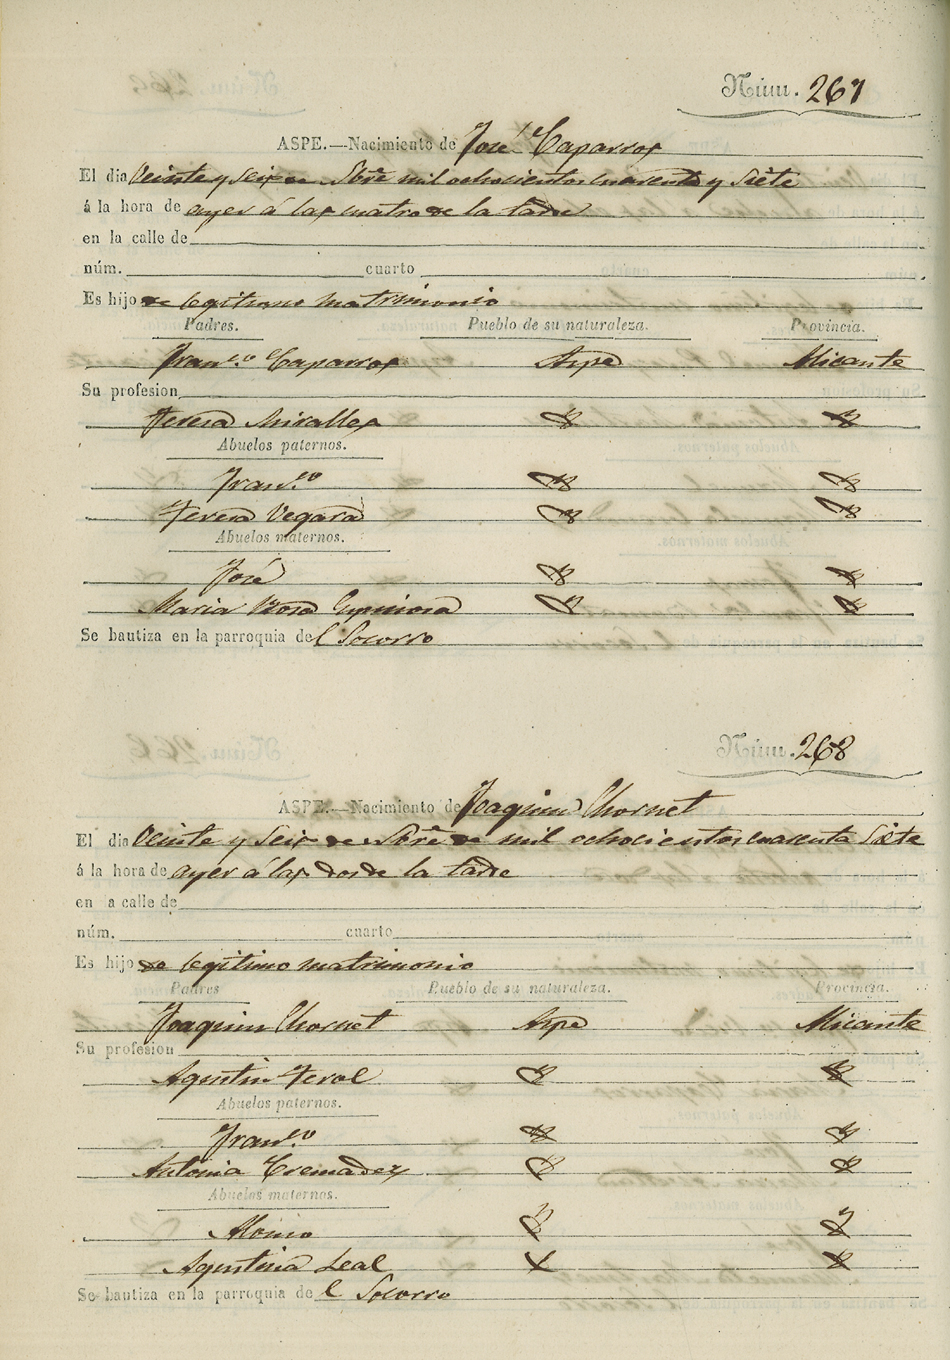 Núm. 267
ASPE.—Nacimiento de José Caparros
El dia Veinte y seis de Sbre mil ochocientos cuarenta y siete
á la hora de ayer á las cuatro de la tarde
en la calle de
núm. cuarto
Es hijo de legitimo matrimonio
Padres. Pueblo de su naturaleza. Provincia.
Fran.co Caparros Aspe Alicante
Su profesion
Teresa Miralles
Abuelos paternos.
Fran.co
Teresa Vegara
Abuelos maternos.
José
Maria Rosa Espinosa
Se bautiza en la parroquia del Socorro
Núm. 268
ASPE.—Nacimiento de Joaquin Chornet
El dia Veinte y seis de Sbre de mil ochocientos cuarenta siete
á la hora de ayer á las dos de la tarde
en a calle de
núm. cuarto
Es hijo de legitimo matrimonio
Padres Pueblo de su naturaleza. Provincia.
Joaquin Chornet Aspe Alicante
Su profesion
Agustin Terol
Abuelos paternos.
Fran.co
Antonia Cremadez
Abuelos maternos.
Alonso
Agustina Leal
Se bautiza en la parroquia del Socorro